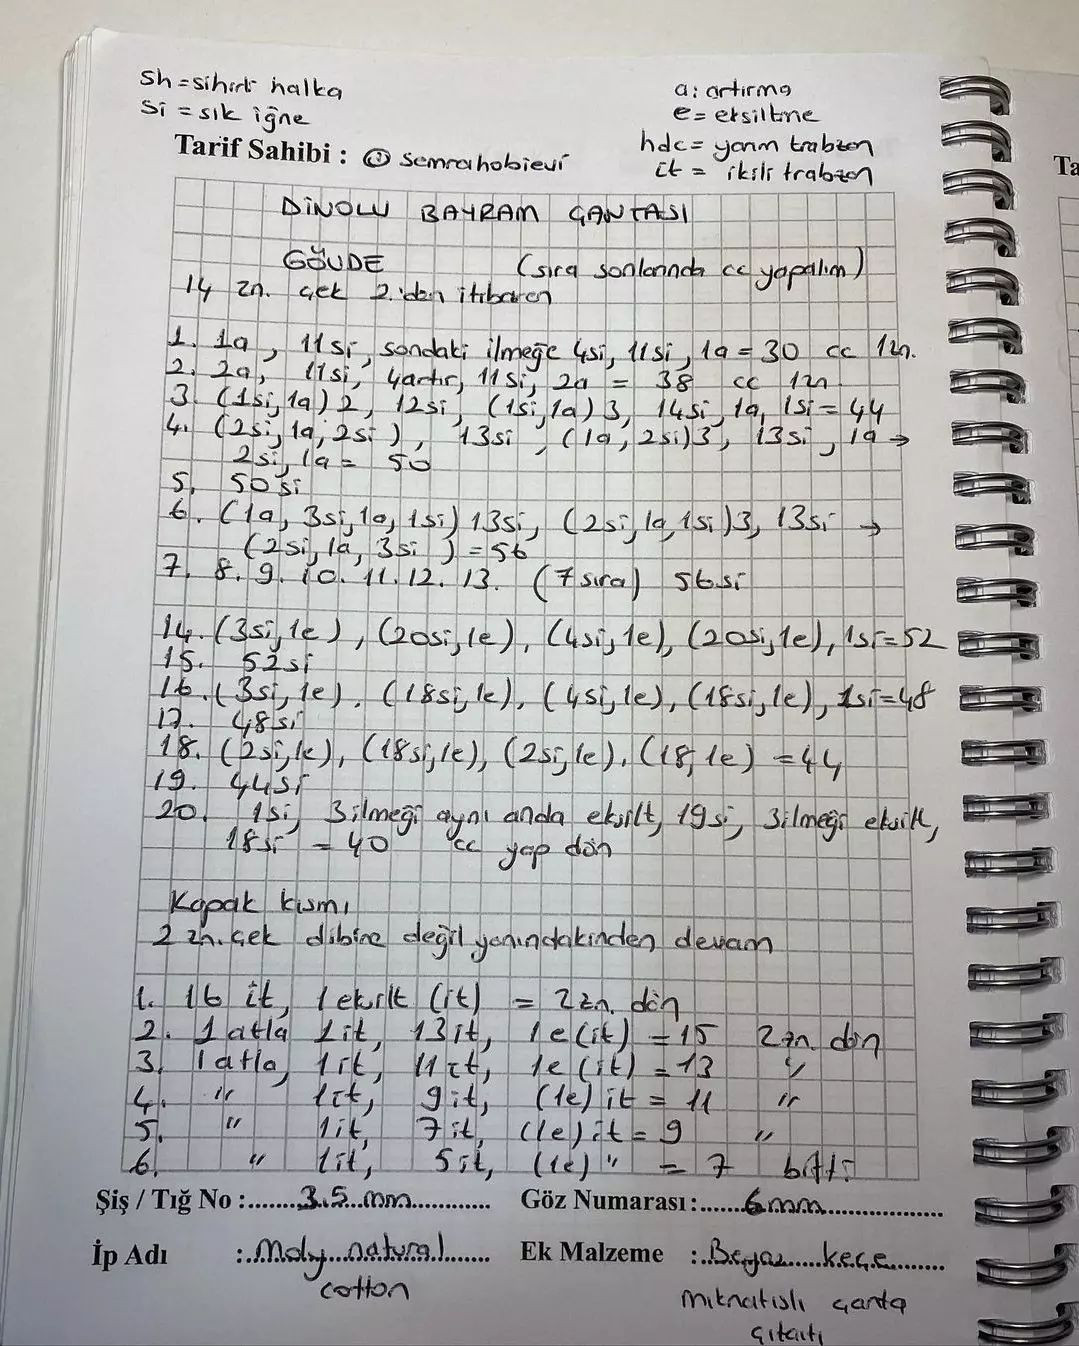 sh = sihirli halka
a: artırma
si = sık iğne
e = eksiltme
hdc = yarım trabzan
Tarif Sahibi : semrahobievi
it = ikili trabzan
Ta
DİNOLU BAYRAM ÇANTASI
GÖVDE (sıra sonlarında cc yapalım)
14 zn. çek 2.'den itibaren
1. 1a, 11si, sondaki ilmeğe 4si, 11si, 1a = 30 cc 1zn.
2. 2a, 11si, 4artır, 11si, 2a = 38 cc 1zn
3. (1si, 1a) 2, 12si, (1si, 1a) 3, 14si, 1a, 1si = 44
4. (2si, 1a, 2si), 13si, (1a, 2si) 3, 13si, 1a →
2si, 1a = 50
5. 50si
6. (1a, 3si, 1a, 1si) 13si, (2si, 1a, 1si) 3, 13si →
(2si, 1a, 3si) = 56
7. 8. 9. 10. 11. 12. 13. (7 sıra) 56si
14. (3si, 1e), (20si, 1e), (4si, 1e), (20si, 1e), 1si = 52
15. 52si
16. (3si, 1e), (18si, 1e), (4si, 1e), (18si, 1e), 1si = 48
17. 48si
18. (2si, 1e), (18si, 1e), (2si, 1e), (18, 1e) = 44
19. 44si
20. 1si, 3 ilmeği aynı anda eksilt, 19si, 3ilmeği eksilt,
18si = 40 cc yap dön
Kapak kısmı
2 zn. çek dibine değil yanındakinden devam
1. 16 it, 1 eksilt (it) = 2zn. dön
2. 1 atla 1it, 13it, 1e (it) = 15 2zn. dön
3. 1 atla, 1it, 11it, 1e (it) = 13 "
4. " 1it, 9it, (1e) it = 11 "
5. " 1it, 7it, (1e) it = 9 "
6. " 1it, 5it, (1e) " = 7 bitti
Şiş / Tığ No :.......3.5 mm............. Göz Numarası:.......6mm....................
İp Adı :..Moly...natural...... Ek Malzeme :..Beyaz....keçe..........
cotton
mıknatıslı çanta
çıtçıtı